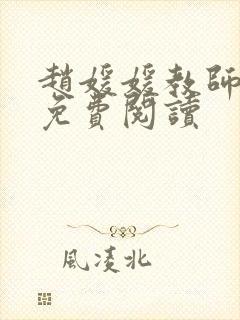 趙媛媛教師
免費閱讀
風凌北